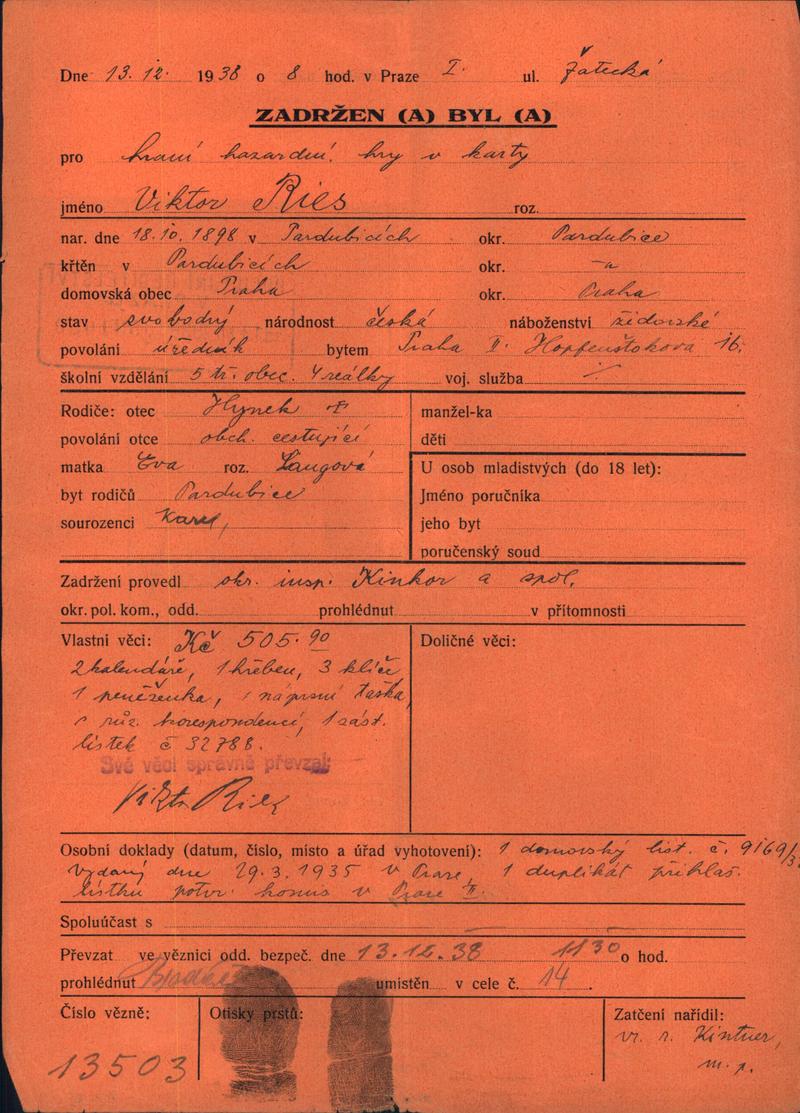 Dne 13. 12. 1938 o 8 hod. v Praze I. ul. Žatecká
ZADRŽEN (A) BYL (A)
pro hraní hazardní hry v karty
jméno Viktor Ries roz.
nar. dne 18.10.1898 v Pardubicích okr. Pardubice
křtěn v Pardubicích okr. "
domovská obec Praha okr. Praha
stav svobodný národnost česká náboženství židovské
povolání úředník bytem Praha II. Hopfenštokova 16.
školní vzdělání 5 tř. obec. 4 reálky voj. služba
Rodiče: otec Hynek
povolání otce obch. cestující
matka Eva roz. Langová
byt rodičů Pardubice
sourozenci Karel,
manžel-ka
děti
U osob mladistvých (do 18 let):
Jméno poručníka
jeho byt
poručenský soud
Zadržení provedl okr. insp. Kinkor a spol.
okr. pol. kom., odd. prohlédnut v přítomnosti
Vlastní věci: Kč 505.90
2 kalendáře, 1 hřeben, 3 klíče
1 peněženka, 1 náprsní taška
s růz. korespondencí, 1 zást.
lístek č 32788.
Své věci správně převzal:
Viktor Ries
Doličné věci:
Osobní doklady (datum, číslo, místo a úřad vyhotovení): 1 domovský list. č. 9169/3
vydaný dne 29.3.1935 v Praze, 1 duplikát přihlaš.
lístku potvr. komis v Praze II.
Spoluúčast s
Převzat ve věznici odd. bezpeč. dne 13.12.38 1130 o hod.
prohlédnut umístěn v cele č. 14.
Číslo vězně:
13503
Otisky prstů:
Zatčení nařídil:
vr. r. Kintner,
m. p.